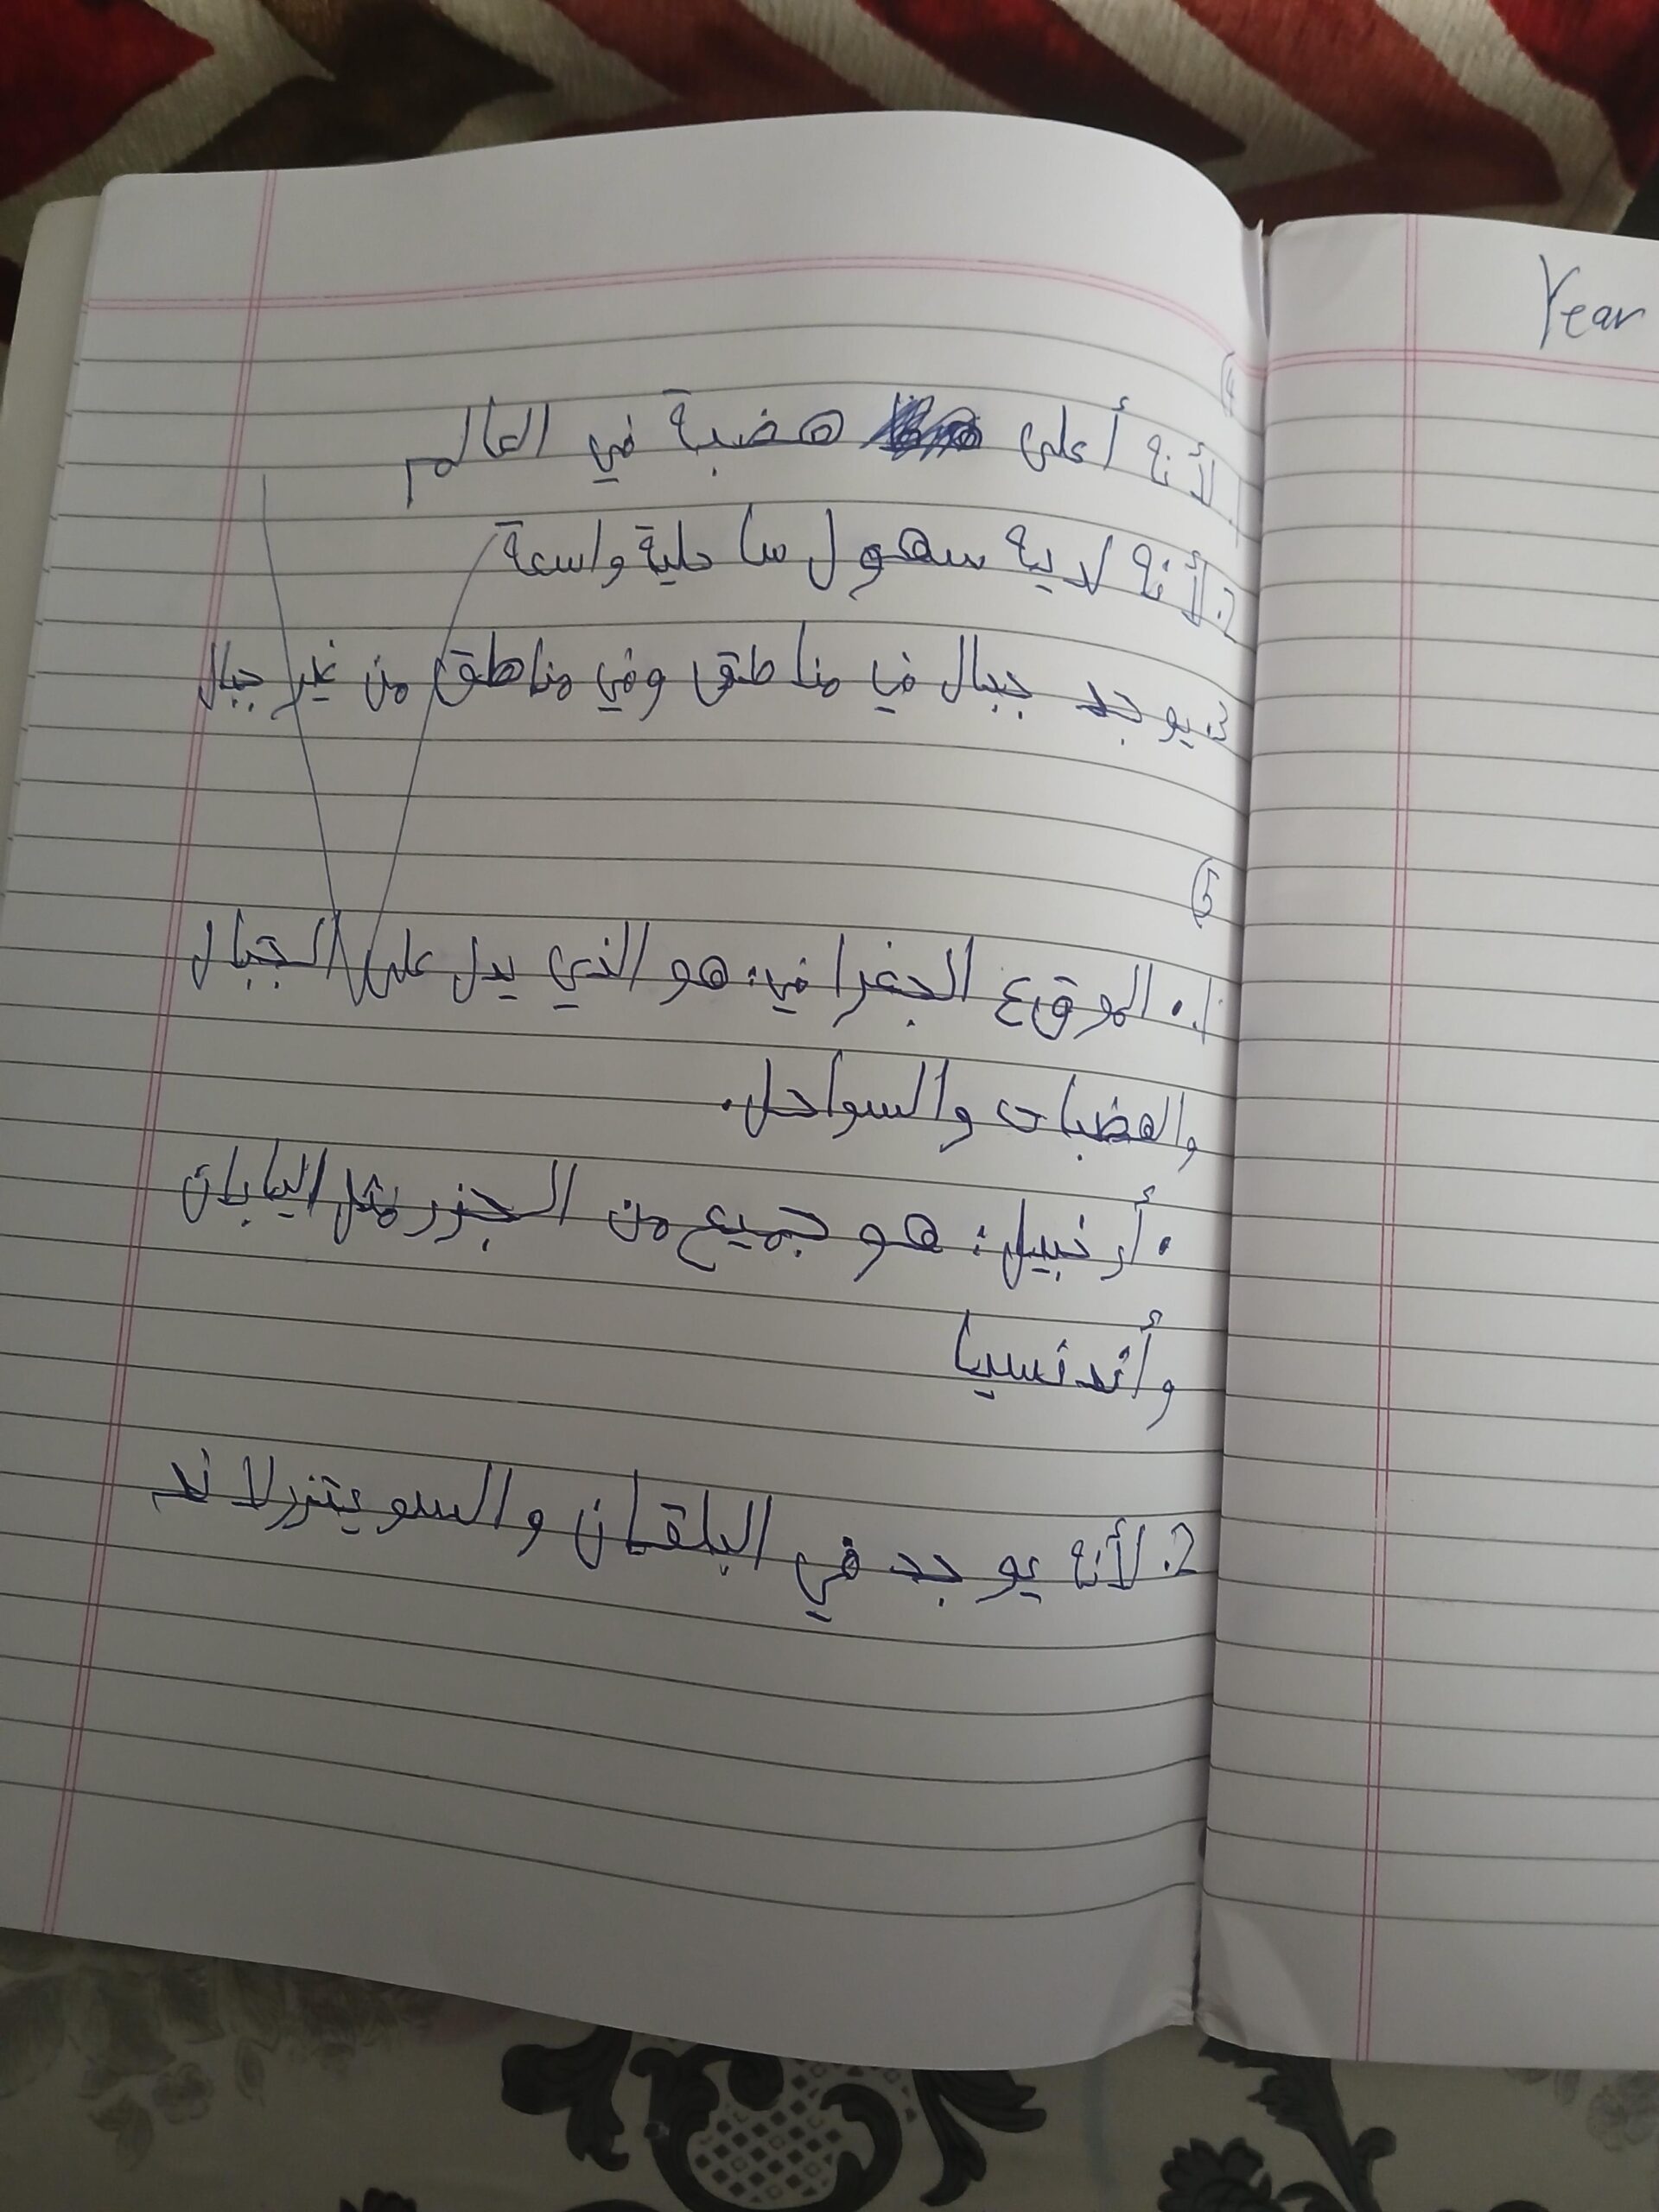 ④
1. لأنه أعلى هضبة في العالم
2. لأنه لديه سهول ساحلية واسعة
3. يوجد جبال في مناطق وفي مناطق من غير جبال
⑤
1. • الموقع الجغرافي: هو الذي يدل على الجبال
والهضبات والسواحل.
• أرخبيل: هو جميع من الجزر مثل اليابان
وأندنسيا
2. لأنه يوجد في البلقان والسويتزرلاند
Year